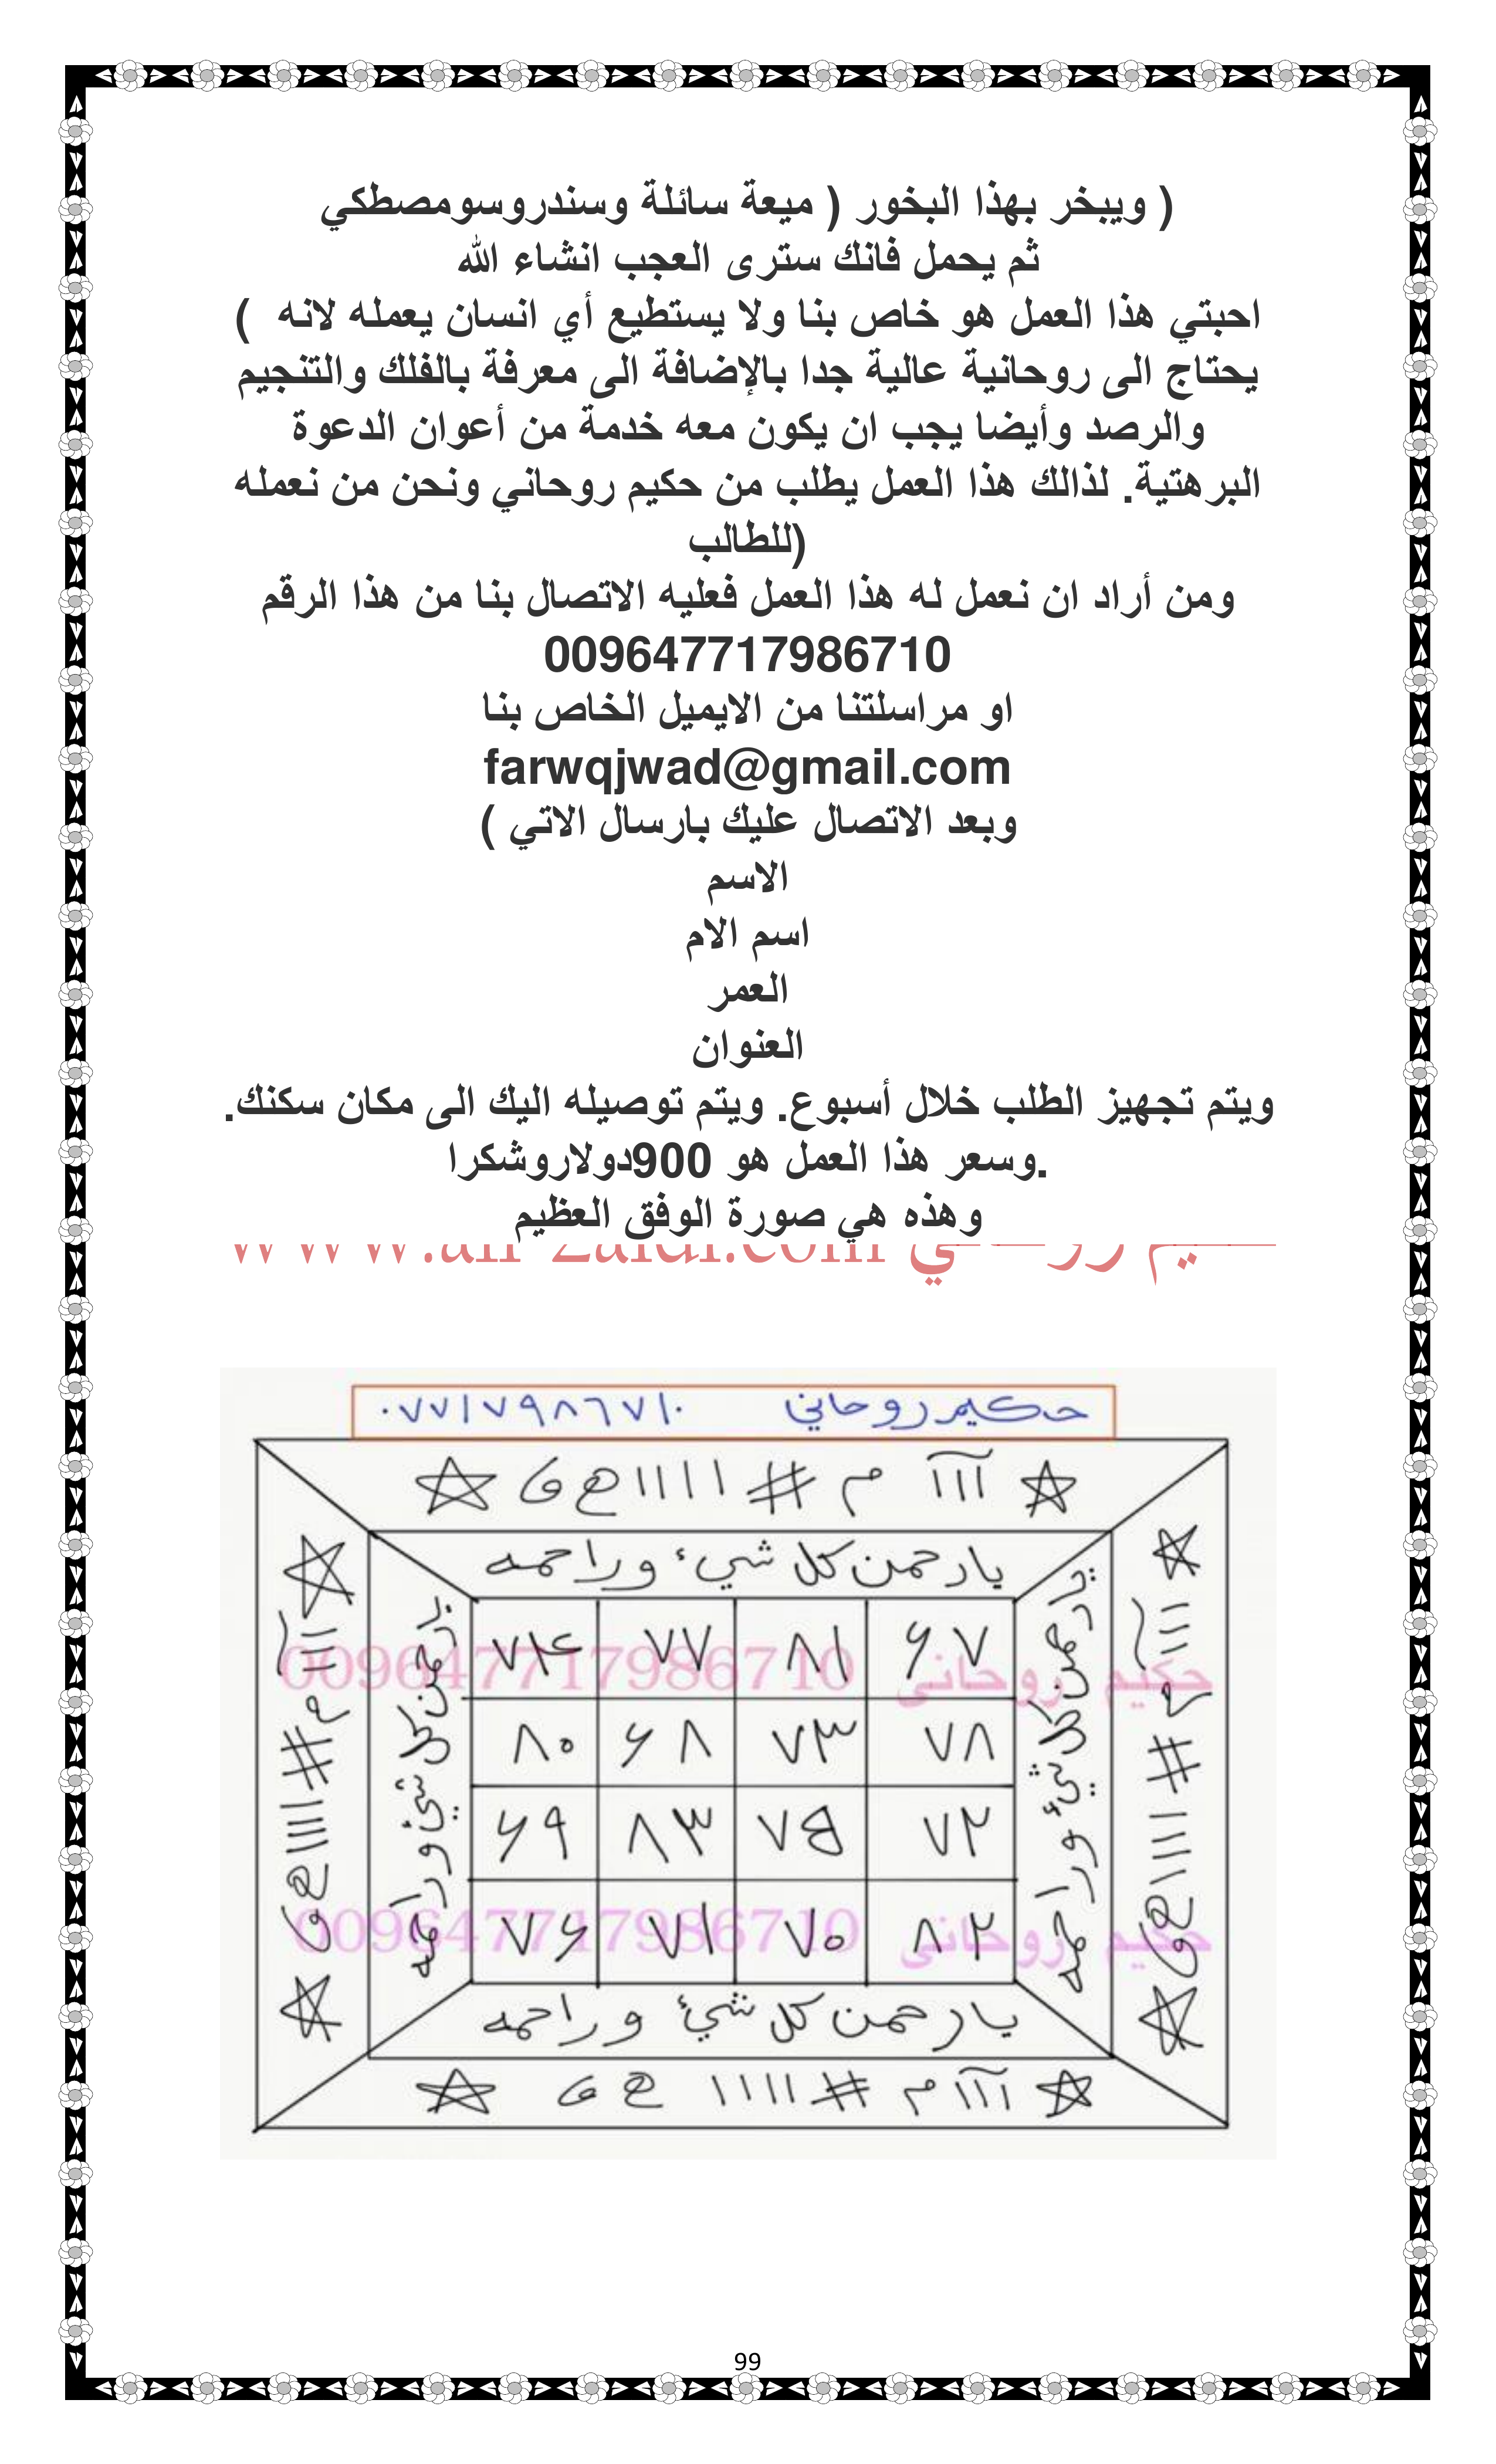 ( ويبخر بهذا البخور ( ميعة سائلة وسندروسومصطكي
ثم يحمل فانك سترى العجب انشاء الله
احبتي هذا العمل هو خاص بنا ولا يستطيع أي انسان يعمله لانه (
يحتاج الى روحانية عالية جدا بالإضافة الى معرفة بالفلك والتنجيم
والرصد وأيضا يجب ان يكون معه خدمة من أعوان الدعوة
البرهتية. لذالك هذا العمل يطلب من حكيم روحاني ونحن من نعمله
(للطالب
ومن أراد ان نعمل له هذا العمل فعليه الاتصال بنا من هذا الرقم
009647717986710
او مراسلتنا من الايميل الخاص بنا
farwqjwad@gmail.com
وبعد الاتصال عليك بارسال الاتي (
الاسم
اسم الام
العمر
العنوان
ويتم تجهيز الطلب خلال أسبوع. ويتم توصيله اليك الى مكان سكنك.
.وسعر هذا العمل هو 900دولاروشكرا
وهذه هي صورة الوفق العظيم
حكيم روحاني ٠٧٧١٧٩٨٦٧١٠
ااآ م # اااا
يا رحمن كل شيء وراحمه
يا رحمن كل شيء وراحمه
يا رحمن كل شيء وراحمه
۶۷ ۸۱ ۷۷ ۷۴
حكيم روحاني 009647717986710
۷۸ ۷۳ ۶۸ ۸۰
۷۲ ۷۵ ۸۳ ۶۹
۸۲ ۷۰ ۷۱ ۷۶
حكيم روحاني 009647717986710
يا رحمن كل شيء وراحمه
ااآ م # اااا
99